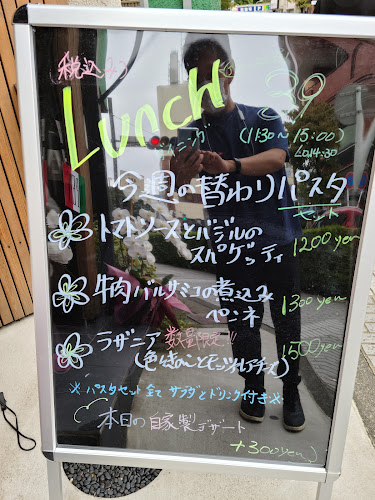 税込み
Lunch
(11:30~15:00)
Lo14:30
今週の替わりパスタ
セット
トマトソースとバジルの
スパゲッティ 1200yen
牛肉バルサミコの煮込み
ペンネ 1300yen
ラザニア 数量限定!! 1500yen
(色々きのことモッツァレアチーズ)
※パスタセット全てサラダとドリンク付き※
本日の自家製デザート
+300yen♪